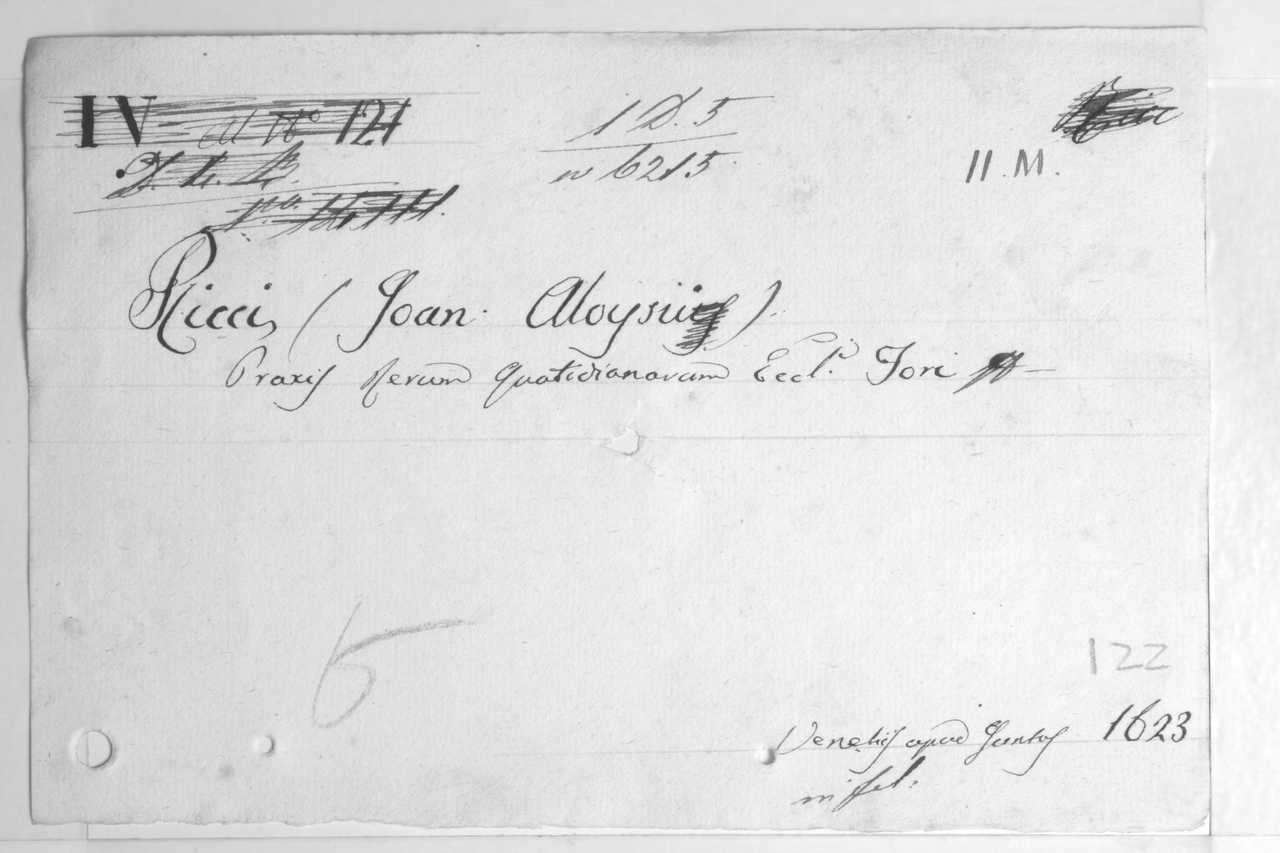 IV 121
1 D. 5
n 6215.
11. M.
Ricci, (Joan. Aloysii).
Praxis Rerum Quotidianarum Eccl. Fori
5
122
Venetijs apud Juntas 1623
in fol.